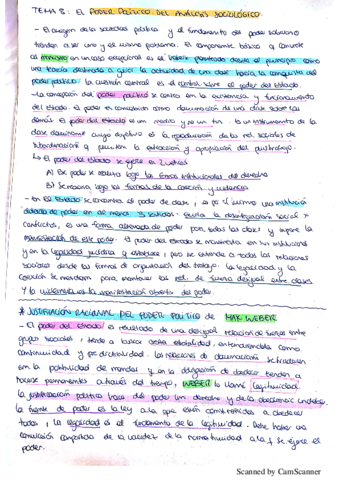 TEMA 8: EL PODER POLÍTICO DEL ANÁLISIS SOCIOLÓGICO
- El origen de la sociedad política y el fundamento del poder soberano
tienden a ser uno y el mismo problema. El componente básico q convierte
al marxismo en un caso excepcional es el haber planteado desde el principio como
una teoría destinada a guiar la actividad de una clase hacia la conquista del
poder político. La cuestión central es el control sobre el poder del Estado.
- La concepción del poder político se centra en la existencia y funcionamiento
del Estado. El poder es considerado como dominación de una clase sobre las
demás. El poder del Estado es un medio y no un fin. Es un instrumento de la
clase dominante cuyo objetivo es la reproducción de las rel. sociales de
subordinación q permiten la extracción y apropiación del plustrabajo.
El poder del Estado se ejerce en 2 vertientes
A) Ese poder se realiza bajo las formas institucionales del derecho
B) Se realiza bajo las formas de la coerción y violencia
- En el Estado se concentra el poder de clase, es por sí mismo una institución
dotada de poder en al menos 3 sentidos: evita la desintegración social y
conflictos, es una forma alienada de poder para todas las clases y supone la
institucionalización de este poder. El poder del Estado se manifiesta en sus instituciones
y en la legalidad jurídica q establece, pero se extiende a todas las relaciones
sociales desde las formas de organización del trabajo. La legalidad y la
coerción se mezclan para mantener las rel. de fuerza desigual entre clases
y la violencia es la manifestación abierta del poder.
* JUSTIFICACIÓN RACIONAL DEL PODER POLÍTICO de MAX WEBER
- El poder del Estado es resultado de una desigual relación de fuerzas entre
grupos sociales, tiende a buscar cierta estabilidad, entendiéndola como
continuidad y predictibilidad. Las relaciones de dominación se traducen
en la posibilidad de mandar y en la obligación de obedecer tienden a
hacerse permanentes a través del tiempo, WEBER lo llamó legitimidad.
La justificación política hace del poder un derecho y de la obediencia un deber.
La fuente de poder es la ley a la que están constreñidos a obedecer
todos, la legalidad es el fundamento de la legitimidad. Debe haber una
convicción compartida de la validez de la normatividad a la q se ejerce el
poder.
Scanned by CamScanner